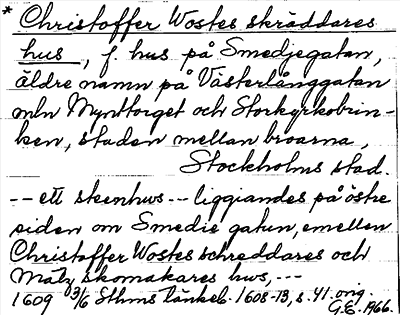 * Christoffer Wostes skräddares
hus, f. hus på Smedjegatan,
äldre namn på Västerlånggatan
mln Mynttorget och Storkyrkobrin-
ken, staden mellan broarna,
Stockholms stad.
-- ett steenhws -- liggiandes på östre
siden om Smedie gatun, emellen
Christoffer Wostes schreddares och
Matz skomakares hws, ---
1609 3/6 Sthms tänkeb. 1608-13, s. 41. orig.
G.E. 1966.